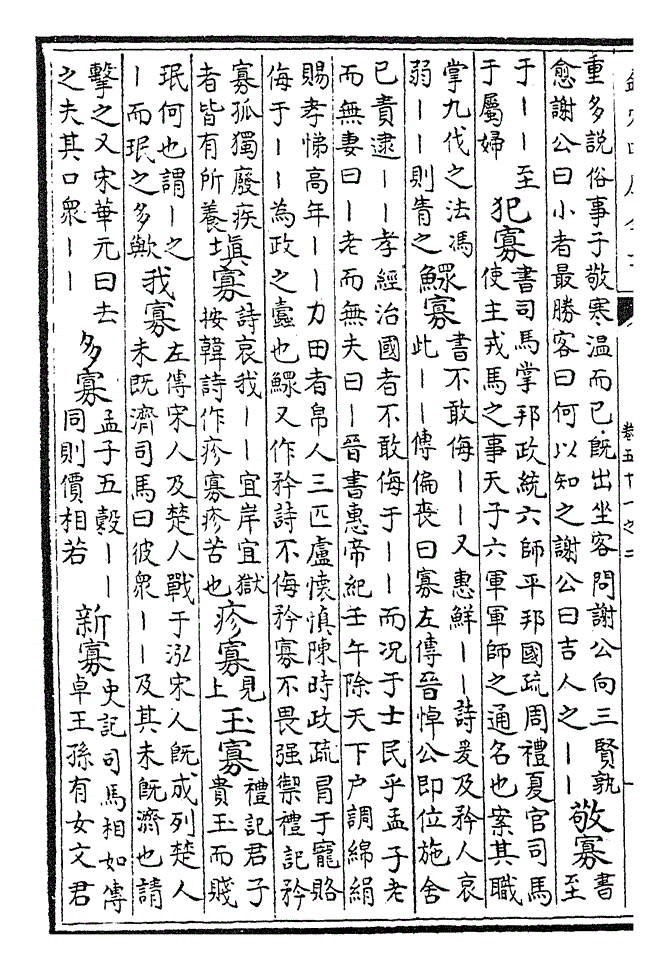 卷五十一之二
重多說俗事子敬寒温而已既出坐客問謝公向三賢孰
愈謝公曰小者最勝客曰何以知之謝公曰吉人之丨丨
敬寡
書
至
于丨丨至
于屬婦
犯寡
書司馬掌邦政統六師平邦國疏周禮夏官司馬
使主戎馬之事天子六軍軍師之通名也案其職
掌九代之法馮
弱丨丨則眚之
鰥寡
書不敢侮丨丨又惠鮮丨丨詩爰及矜人哀
此丨丨傳偏喪曰寡左傳晉悼公即位施舍
已責逮丨丨孝經治國者不敢侮于丨丨而况于士民乎孟子老
而無妻曰丨老而無夫曰丨晉書惠帝紀壬午除天下户調綿絹
賜孝悌高年丨丨力田者帛人三匹盧懷慎陳時政疏冒于寵賂
侮于丨丨為政之蠹也鰥又作矜詩不侮矜寡不畏强禦禮記矜
寡孤獨廢疾
者皆有所養
填寡
詩哀我丨丨宜岸宜獄
按韓詩作疹寡疹苦也
疹寡
見
上
玉寡
禮記君子
貴玉而賤
珉何也謂丨之
丨而珉之多歟
我寡
左傳宋人及楚人戰于泓宋人既成列楚人
未既濟司馬曰彼衆丨丨及其未既濟也請
擊之又宋華元曰去
之夫其口衆丨丨
多寡
孟子五穀丨丨
同則價相若
新寡
史記司馬相如傳
卓王孫有女文君